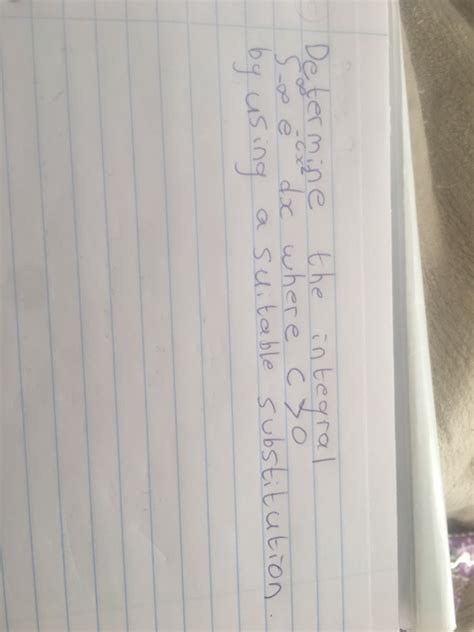 Determine the integral
∫_{-∞}^{∞} e^{-cx²} dx where C>0
by using a suitable substitution.